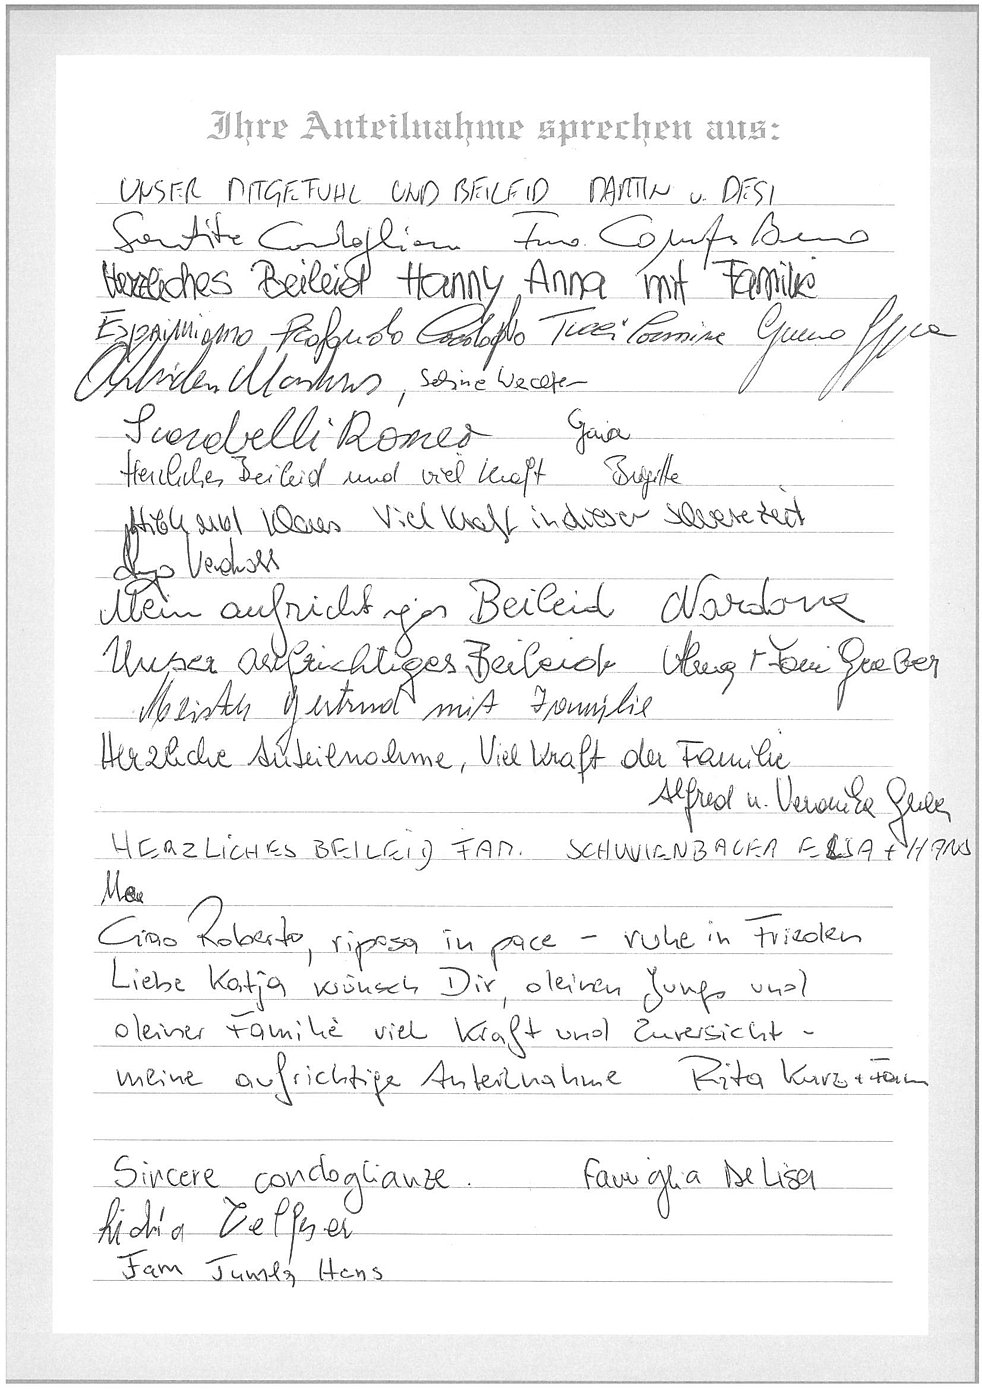 Ihre Anteilnahme sprechen aus:
UNSER MITGEFÜHL UND BEILEID MARTIN u. DESI
Sentite Condoglianze Fam.
Herzliches Beileid Hanny Anna mit Familie
Esprimiamo Profondo Cordoglio
Sabine
Scardbelli Romeo Gaia
Herzliches Beileid und viel Kraft Brigitte
und Klaus Viel Kraft in dieser schwere Zeit
Mein aufrichtiges Beileid Nardone
Unser aufrichtiges Beileid
Gertrud mit Familie
Herzliche Anteilnahme, Viel Kraft der Familie
Alfred u. Veronika
HERZLICHES BEILEID FAM. SCHWIENBACHER ELSA + HANS
Ciao Roberto, riposa in pace - ruhe in Frieden
Liebe Katja wünsch Dir, deinen Jungs und
deiner Familie viel Kraft und Zuversicht -
meine aufrichtige Anteilnahme Rita Kurz + Fam
Sincere condoglianze. Famiglia De Lisa
Lidia
Fam Hans